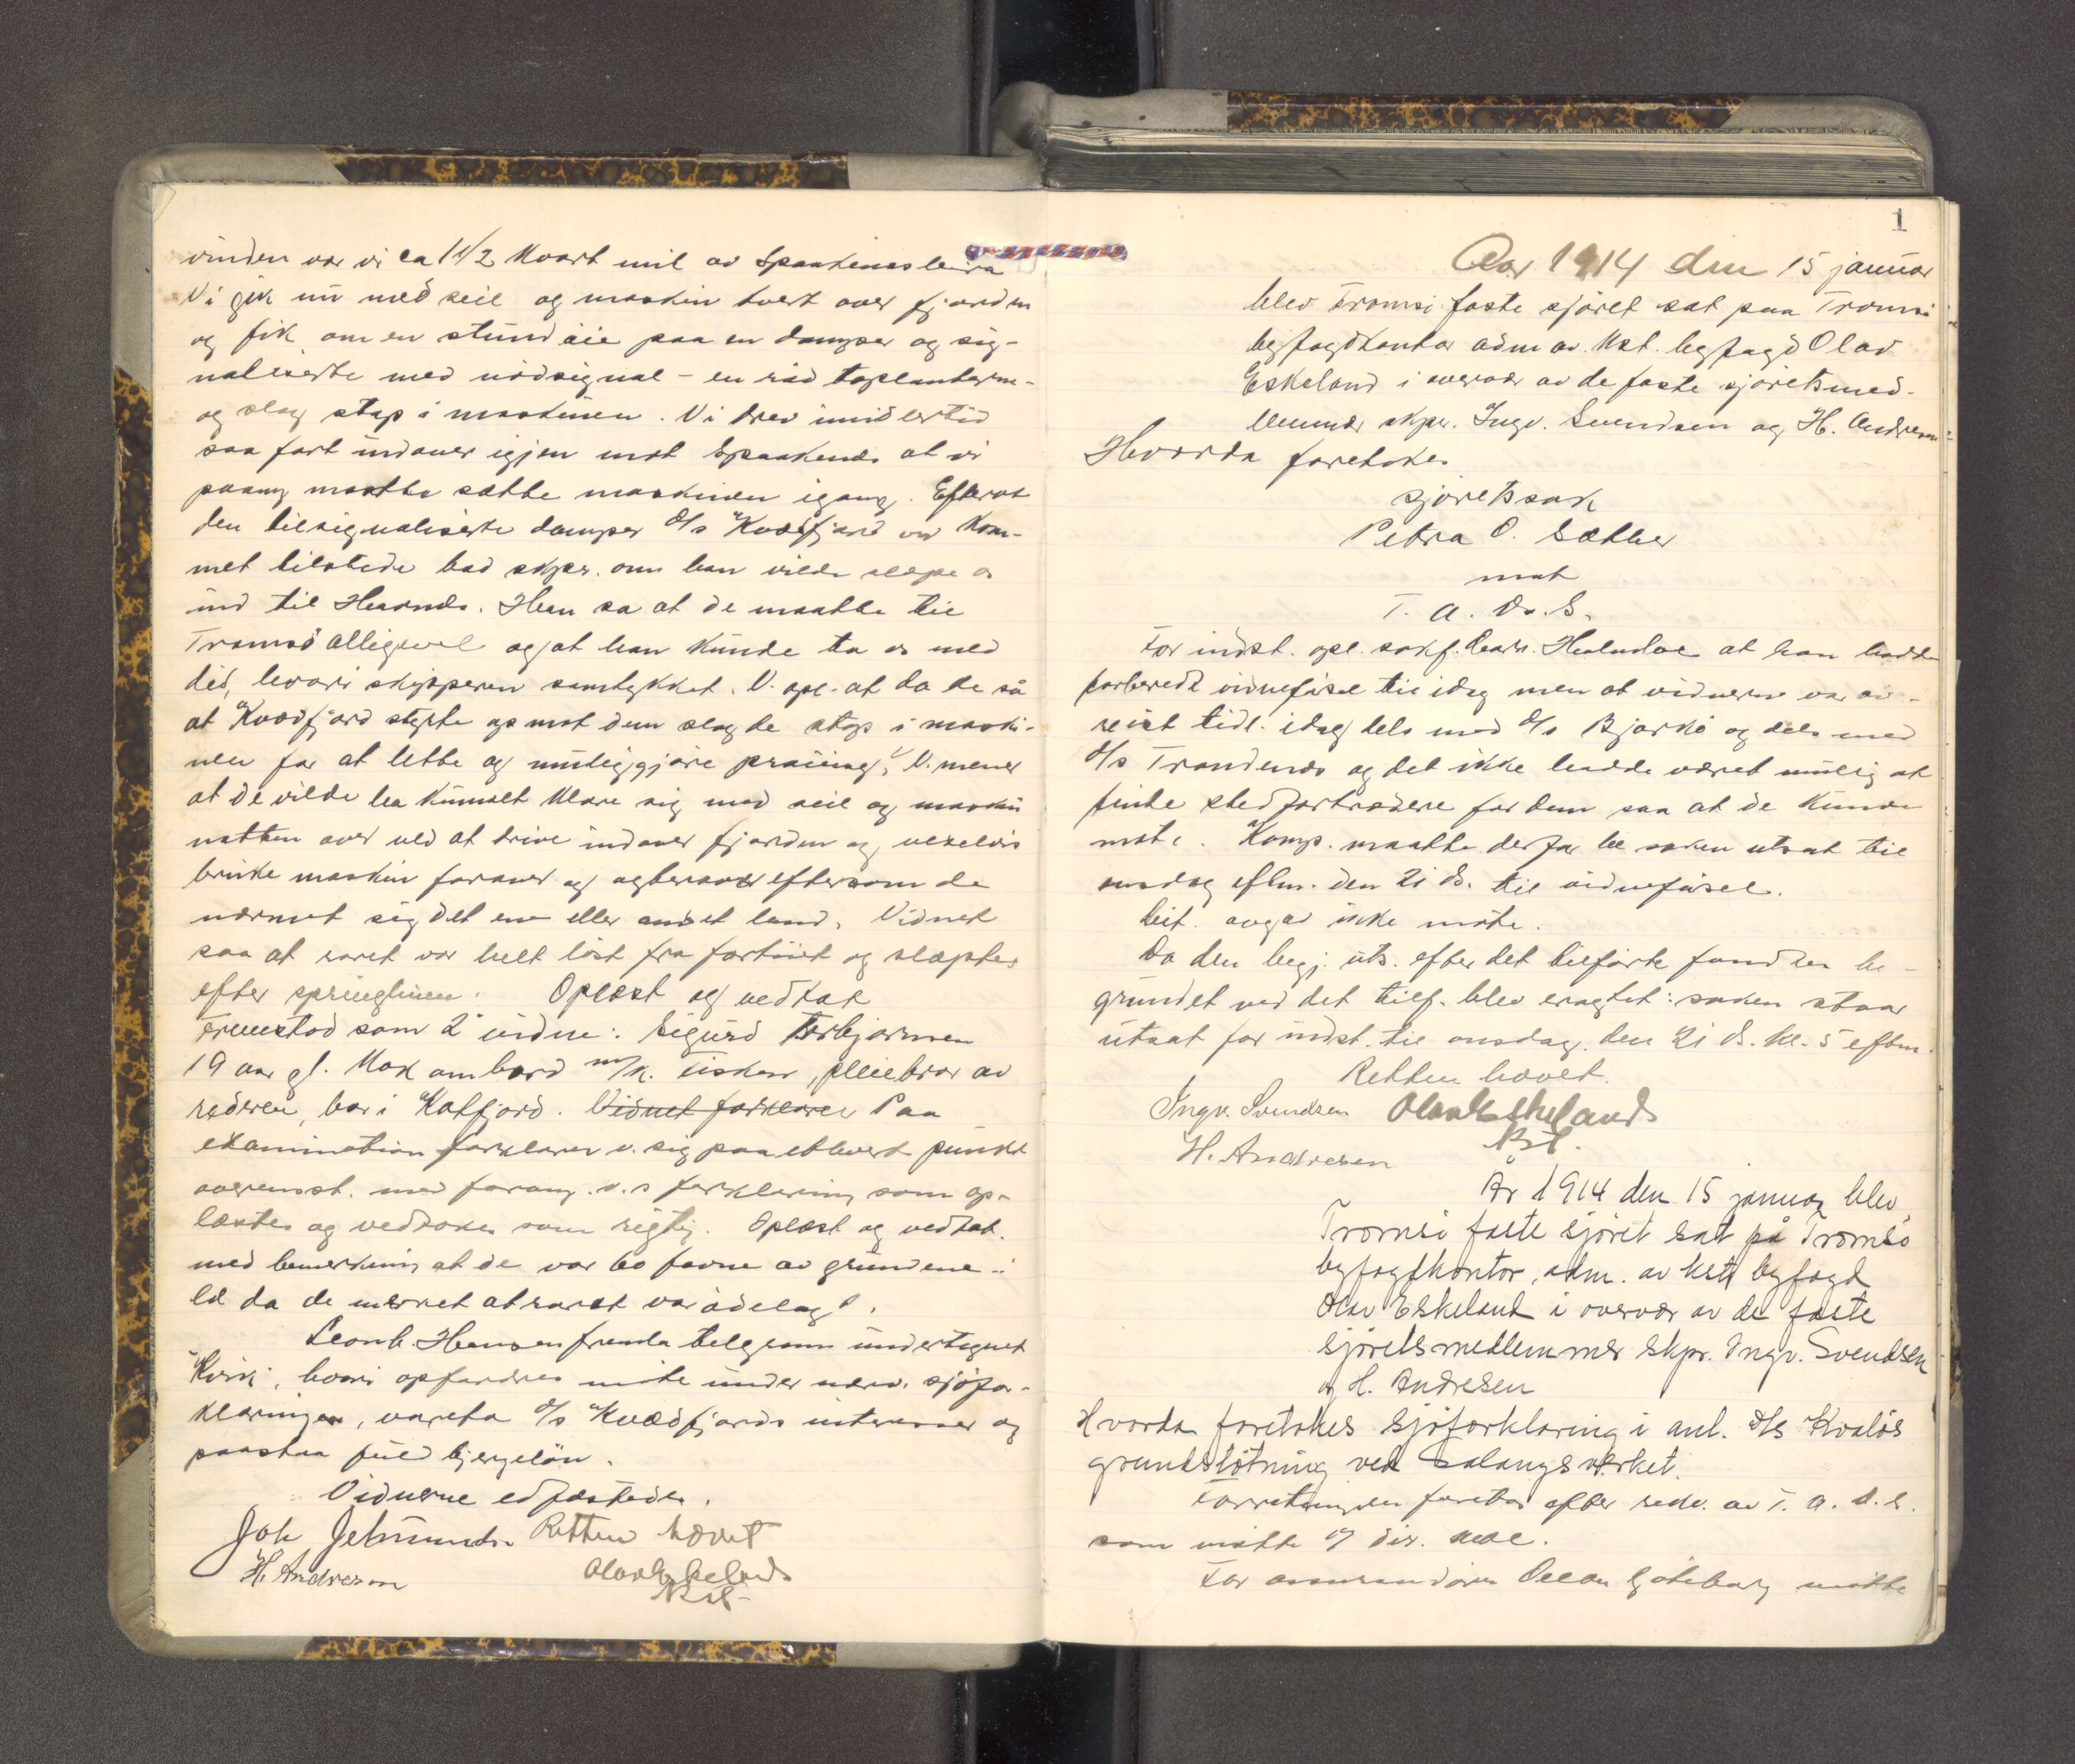 vinden var vi ca 1 1/2 kvart mil av Spaakenesleira
Vi gik nu med seil og maskin tvert over fjorden
og fik om en stund øie paa en damper og sig-
naliserte med nødsignal - en rød toplanterne -
og slog stop i maskinen. Vi drev imidlertid
saa fort indover igjen mot Spaakenes at vi
paany maatte sætte maskinen igang. Efterat
den tilsignaliserte damper d/s "Kvædfjord var kom-
met tilstede bad skpr. om han vilde slæpe os
ind til Havnnes. Han sa at de maatte til
Tromsø alligevel og at han kunde ta os med
did, hvori skipperen samtykket. V. opl. at da de så
at "Kvædfjord styrte op mot dem slog de stop i maski-
nen for at lette og muliggjøre praiing, V. mener
at de vilde ha kunnet klare sig med seil og maskin
natten over ved at drive indover fjorden og vekselvis
bruke maskin forover og agterover eftersom de
nærmet sig det ene eller andet land. Vidnet
saa at roret var helt løst fra fartøiet og slæptes
efter springlinen. Oplæst og vedtat
Fremstod som 2' vidne: Sigurd Torbjørnsen
19 aar gl. kok ombord m/k. , pleiebror av
rederen, bor i Katfjord. Vidnet forklarer Paa
examination forklarer v. sig paa ethvert punkt
overensst. med forang. v.s forklaring som op-
læstes og vedtokes som rigtig. Oplæst og vedtat.
med bemerkning at de var 60 favne av grundene i
ld da de merket at roret var ødelagt.
Leonh. Hansen fremla telegram undertegnet
"Kirk", hvori opfordres møte under nærv. sjøfor-
klaringen, vareta d/s "Kvædfjords interesser og
paastaa fuld bjergeløn.
Vidnerne edfæstedes.
Joh Jelmunds. Retten hævet
H. Andresen Olav Eskeland
Kst.
1
Aar 1914 den 15 januar
blev Tromsø faste sjøret sat paa Tromsø
byfogdkontor adm av kst. byfogd Olav
Eskeland i overvær av de faste sjøretsmed-
lemmer skpr. Ingv. Svendsen og H. Andresen
Hvorda foretokes
sjøretssak
Petra O. Sæther
mot
T. A. D. S.
For indst. opl. sakf. Holmboe at han hadde
forberedt vidneførsel til idag men at vidnerne var av-
reist tidl. idag dels med d/s Bjarkø og dels med
d/s Trondenes og det ikke hadde været mulig at
finde stedfortrædere for dem saa at de kunde
møte. Komp. maatte derfor be saken utsat til
onsdag eftm. den 21 ds. til vidneførsel.
Cit. avgav ikke møte.
Da den begj. uts. efter det tilførte fandtes be-
grundet ved det tilf. blev eragtet: saken staar
utsat for indst. til onsdag den 21 ds. kl. 5 eftm.
Retten hævet.
Ingv. Svendsen Olav Eskeland
Kst.
H. Andresen
År 1914 den 15 januar blev
Tromsø faste sjøret sat på Tromsø
byfogdkontor, adm. av kst byfogd
Olav Eskeland i overvær av de faste
sjøretsmedlemmer skpr. Ingv. Svendsen
og H. Andresen
Hvorda foretokes sjøforklaring i anl. d/s Kvaløs
grundstøtning ved Salangsverket.
Forretningen foretas efter rekv. av T. A. D. S.
som møtte v/ dir.
For assurandøren Ocean Gøteborg møtte